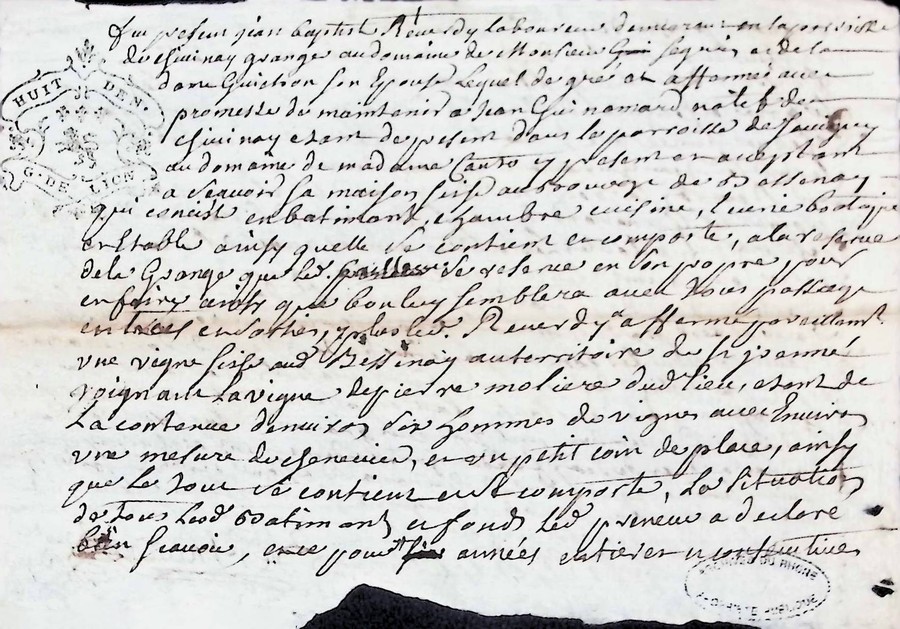 Fut present jean baptiste Reverdy laboureur demeurant en la paroisse
de chivinay grange au domaine de Monsieur seguin et de la
dame Guichon son Epouse Lequel de gré at affermé avec
promesse de maintenir a Jean Guinamard natif de
chivinay etant de present dans la paroisse de savigny
au domaine de madame y present et aceptant
a scavoir sa maison sise au de Bessenay
qui consiste en batiment, chambre cuisine, boutique
et Etable ainsy quelle se contient et comporte, a la reserve
de la Grange que led. se reserve en son propre pour
en faire ainsy que bon luy semblera avec tous passage
entrées en sorties, plus led. Reverdy a affermé pareillemt.
une vigne sise aud. Bessenay au territoire de
joignant La vigne de pierre moliere dud. lieu, etant de
La contenue denviron six hommes de vignes avec Environ
une mesure de chenevier, et un petit coin de place, ainsy
que le tout se contient et se comporte, La situation
de tous Lesd. Batiment et fonds led. preneur a declaré
bien scavoir, et ce pour années entieres et consecutives
HUIT DEN.
G. DE LION
ARCHIVES DU RHONE
PROPRIETE PUBLIQUE